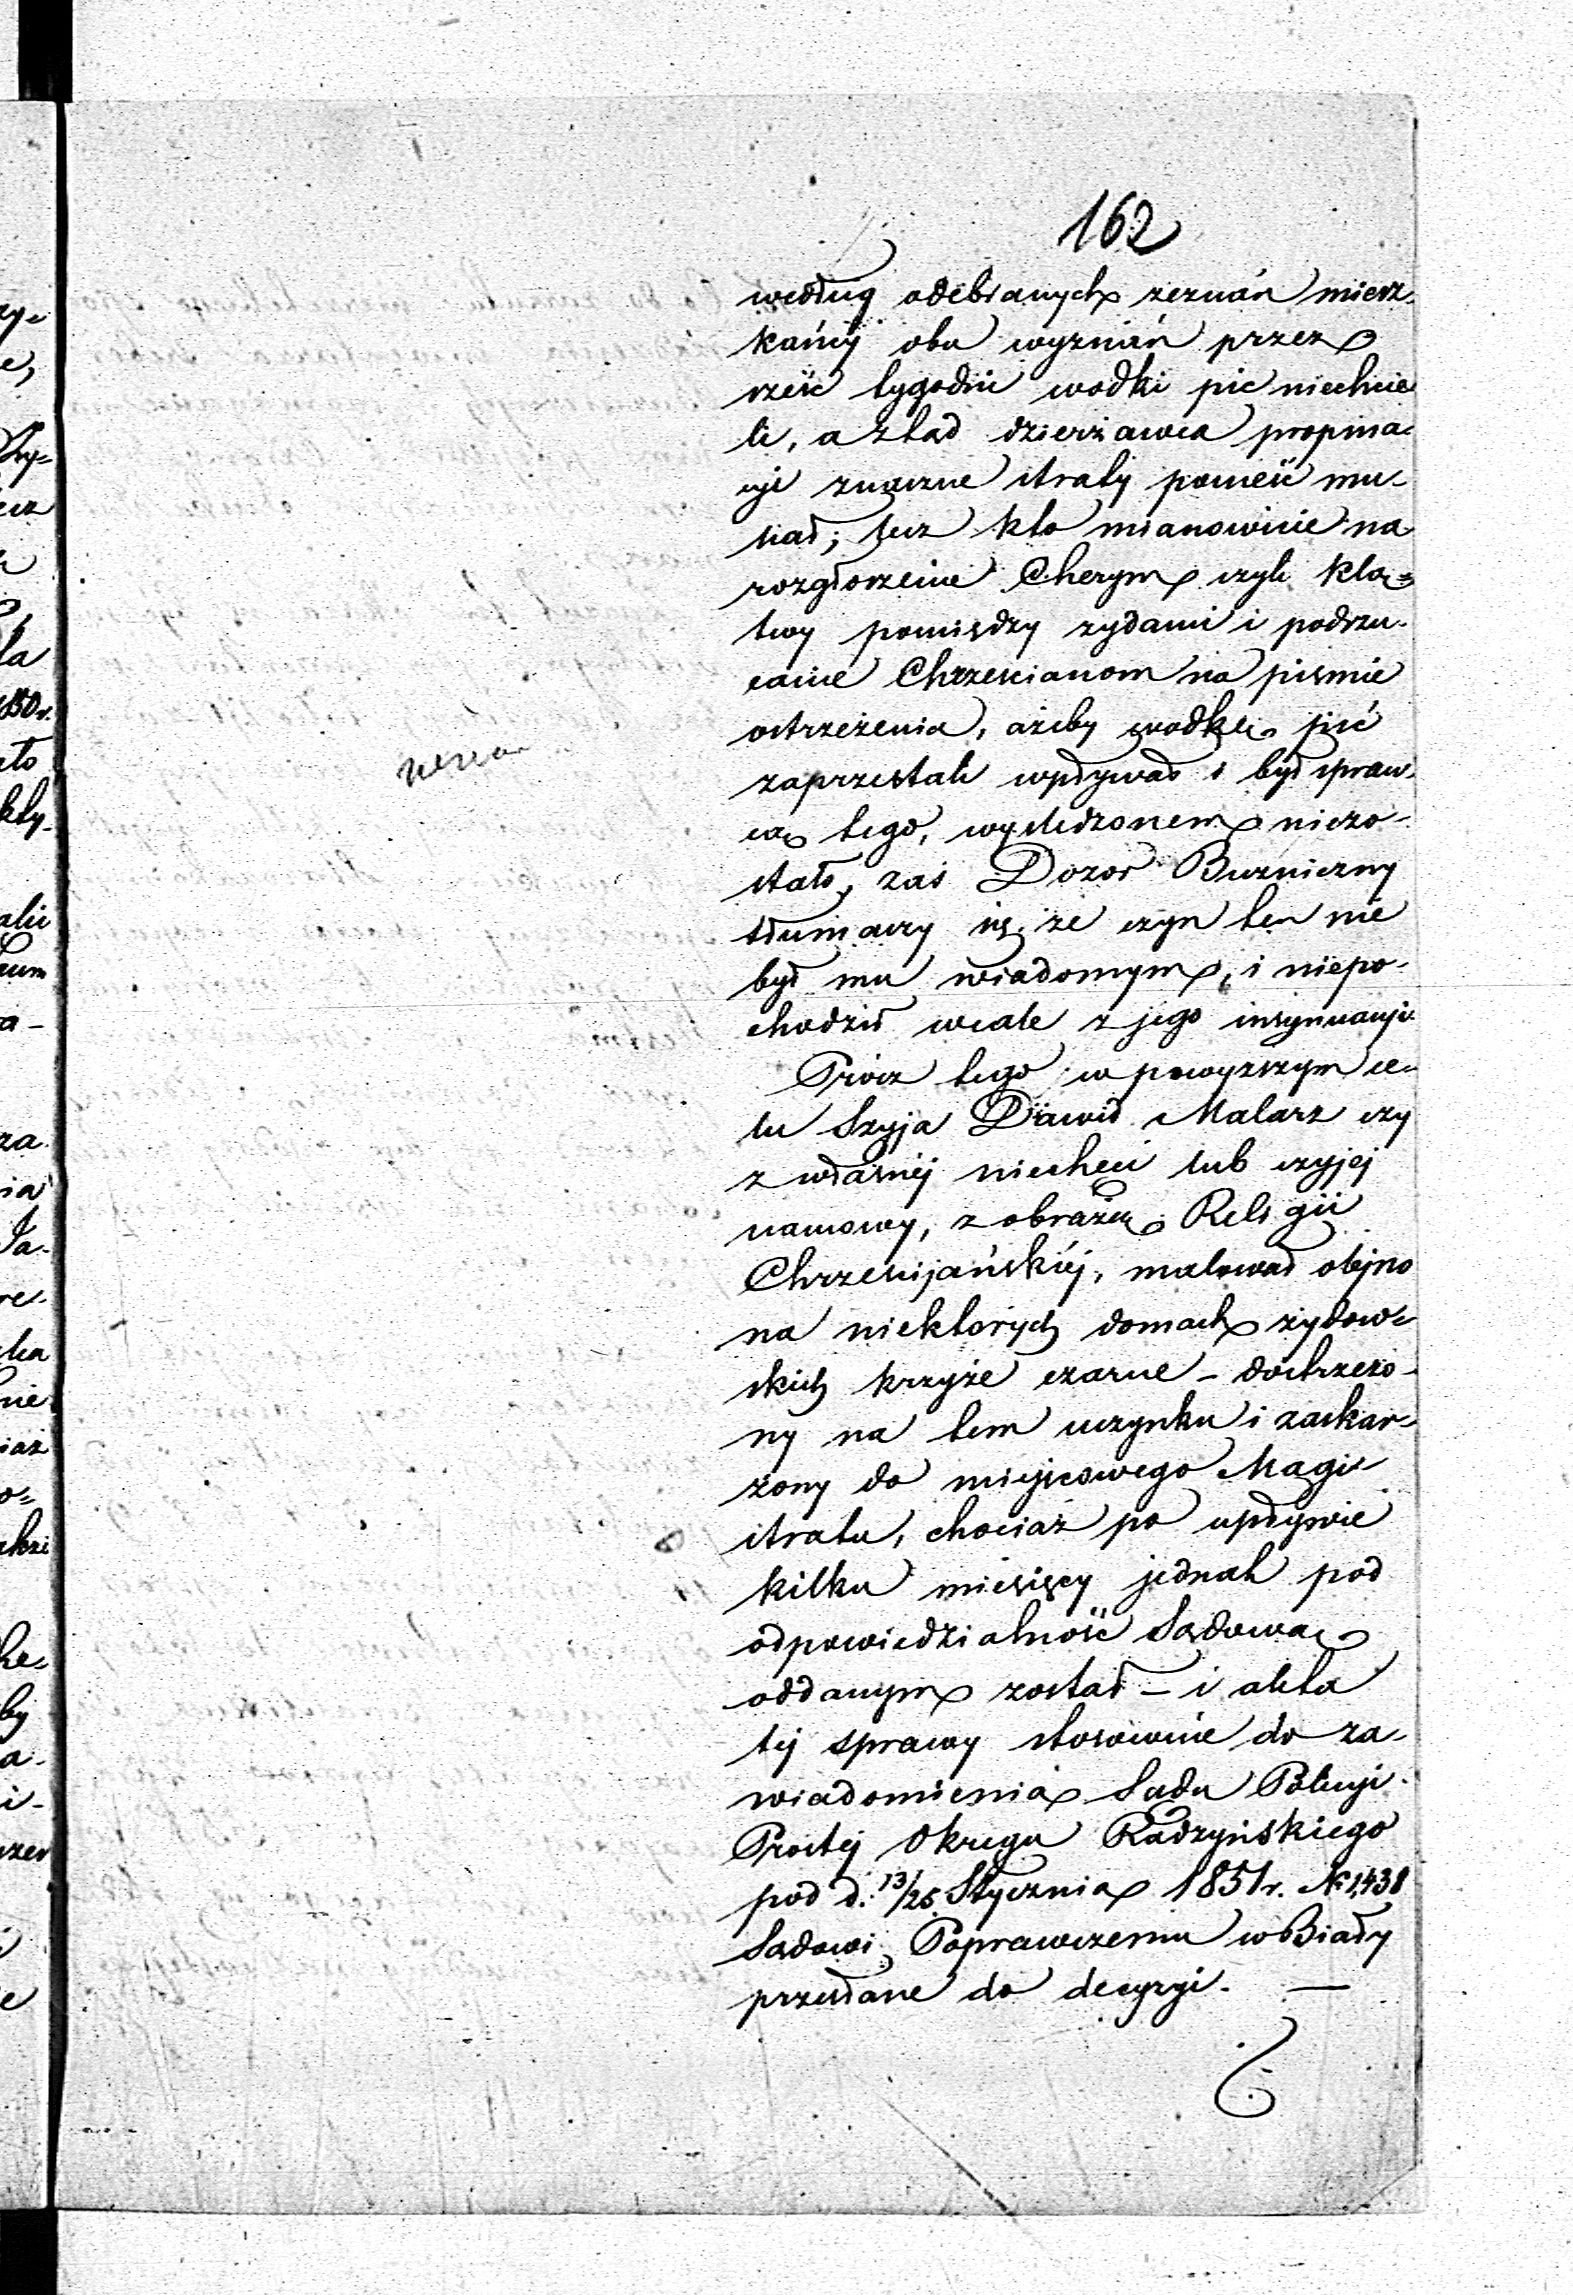 162
według odebranych zeznań miesz-
kańcy obu wyznań przez
sześć tygodni wodki pic niechcie
li, a ztad dzierżawca propina-
cyi znaczne straty ponieść mu-
siał; lecz kto mianowicie na
rozgłoszenie Cherym czyli klą-
twy pomiędzy zydami i podrzu-
canie Chrzescianom na pismie
ostrzeżenia, ażeby wodkę pić
zaprzestali wpływał i był spraw-
cą tego, wyśledzonem niezo-
stało, zaś Dozor Bużniczny
tłumaczy się, że czyn ten nie
był mu wiadomym, i niepo-
chodził wcale z jego insynuacyi
Prócz tego w powyzszym ce-
lu Szyja Dawid Malarz czy
z własnéj niechęci lub czyjej
namowy, z obrazą Religii
Chrzescijańskiéj, malował olejno
na niektorych domach żydow-
skich krzyże czarne – dostrzeżo-
ny na tem uczynku i zaskar-
żony do miejscowego Magi-
stratu, chociaż po upływie
kilku miesięcy jednak pod
odpowiedzialność Sądową
oddanym został – i akta
téj sprawy stosownie do za-
wiadomienia Sądu Policyi
Prostéj Okręgu Radzyńskiego
pod d. 13/25 Stycznia 1851 r. № 1,438
Sądowi Poprawczemu w Biały
przesłane do decyzyi. —